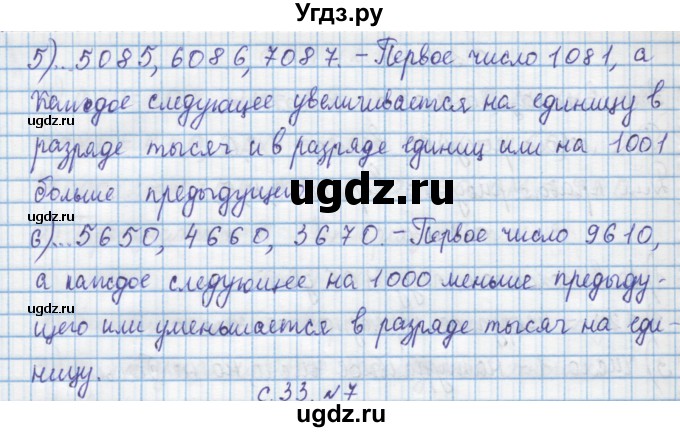 Угдз.ру
5)...5085, 6086, 7087. - Первое число 1081, а
каждое следующее увеличивается на единицу в
ugdz.ru ugdz.ru
разряде тысяч и в разряде единиц или на 1001
больше предыдущего
ugdz.ru
ugdz.ru
6)...5650, 4660, 3670. - Первое число 9610,
а каждое следующее на 1000 меньше предыду-
щего или уменьшается в разряде тысяч на еди-
ugdz.ru ugdz.ru
ницу.
с. 33. №7
ugdz.ru